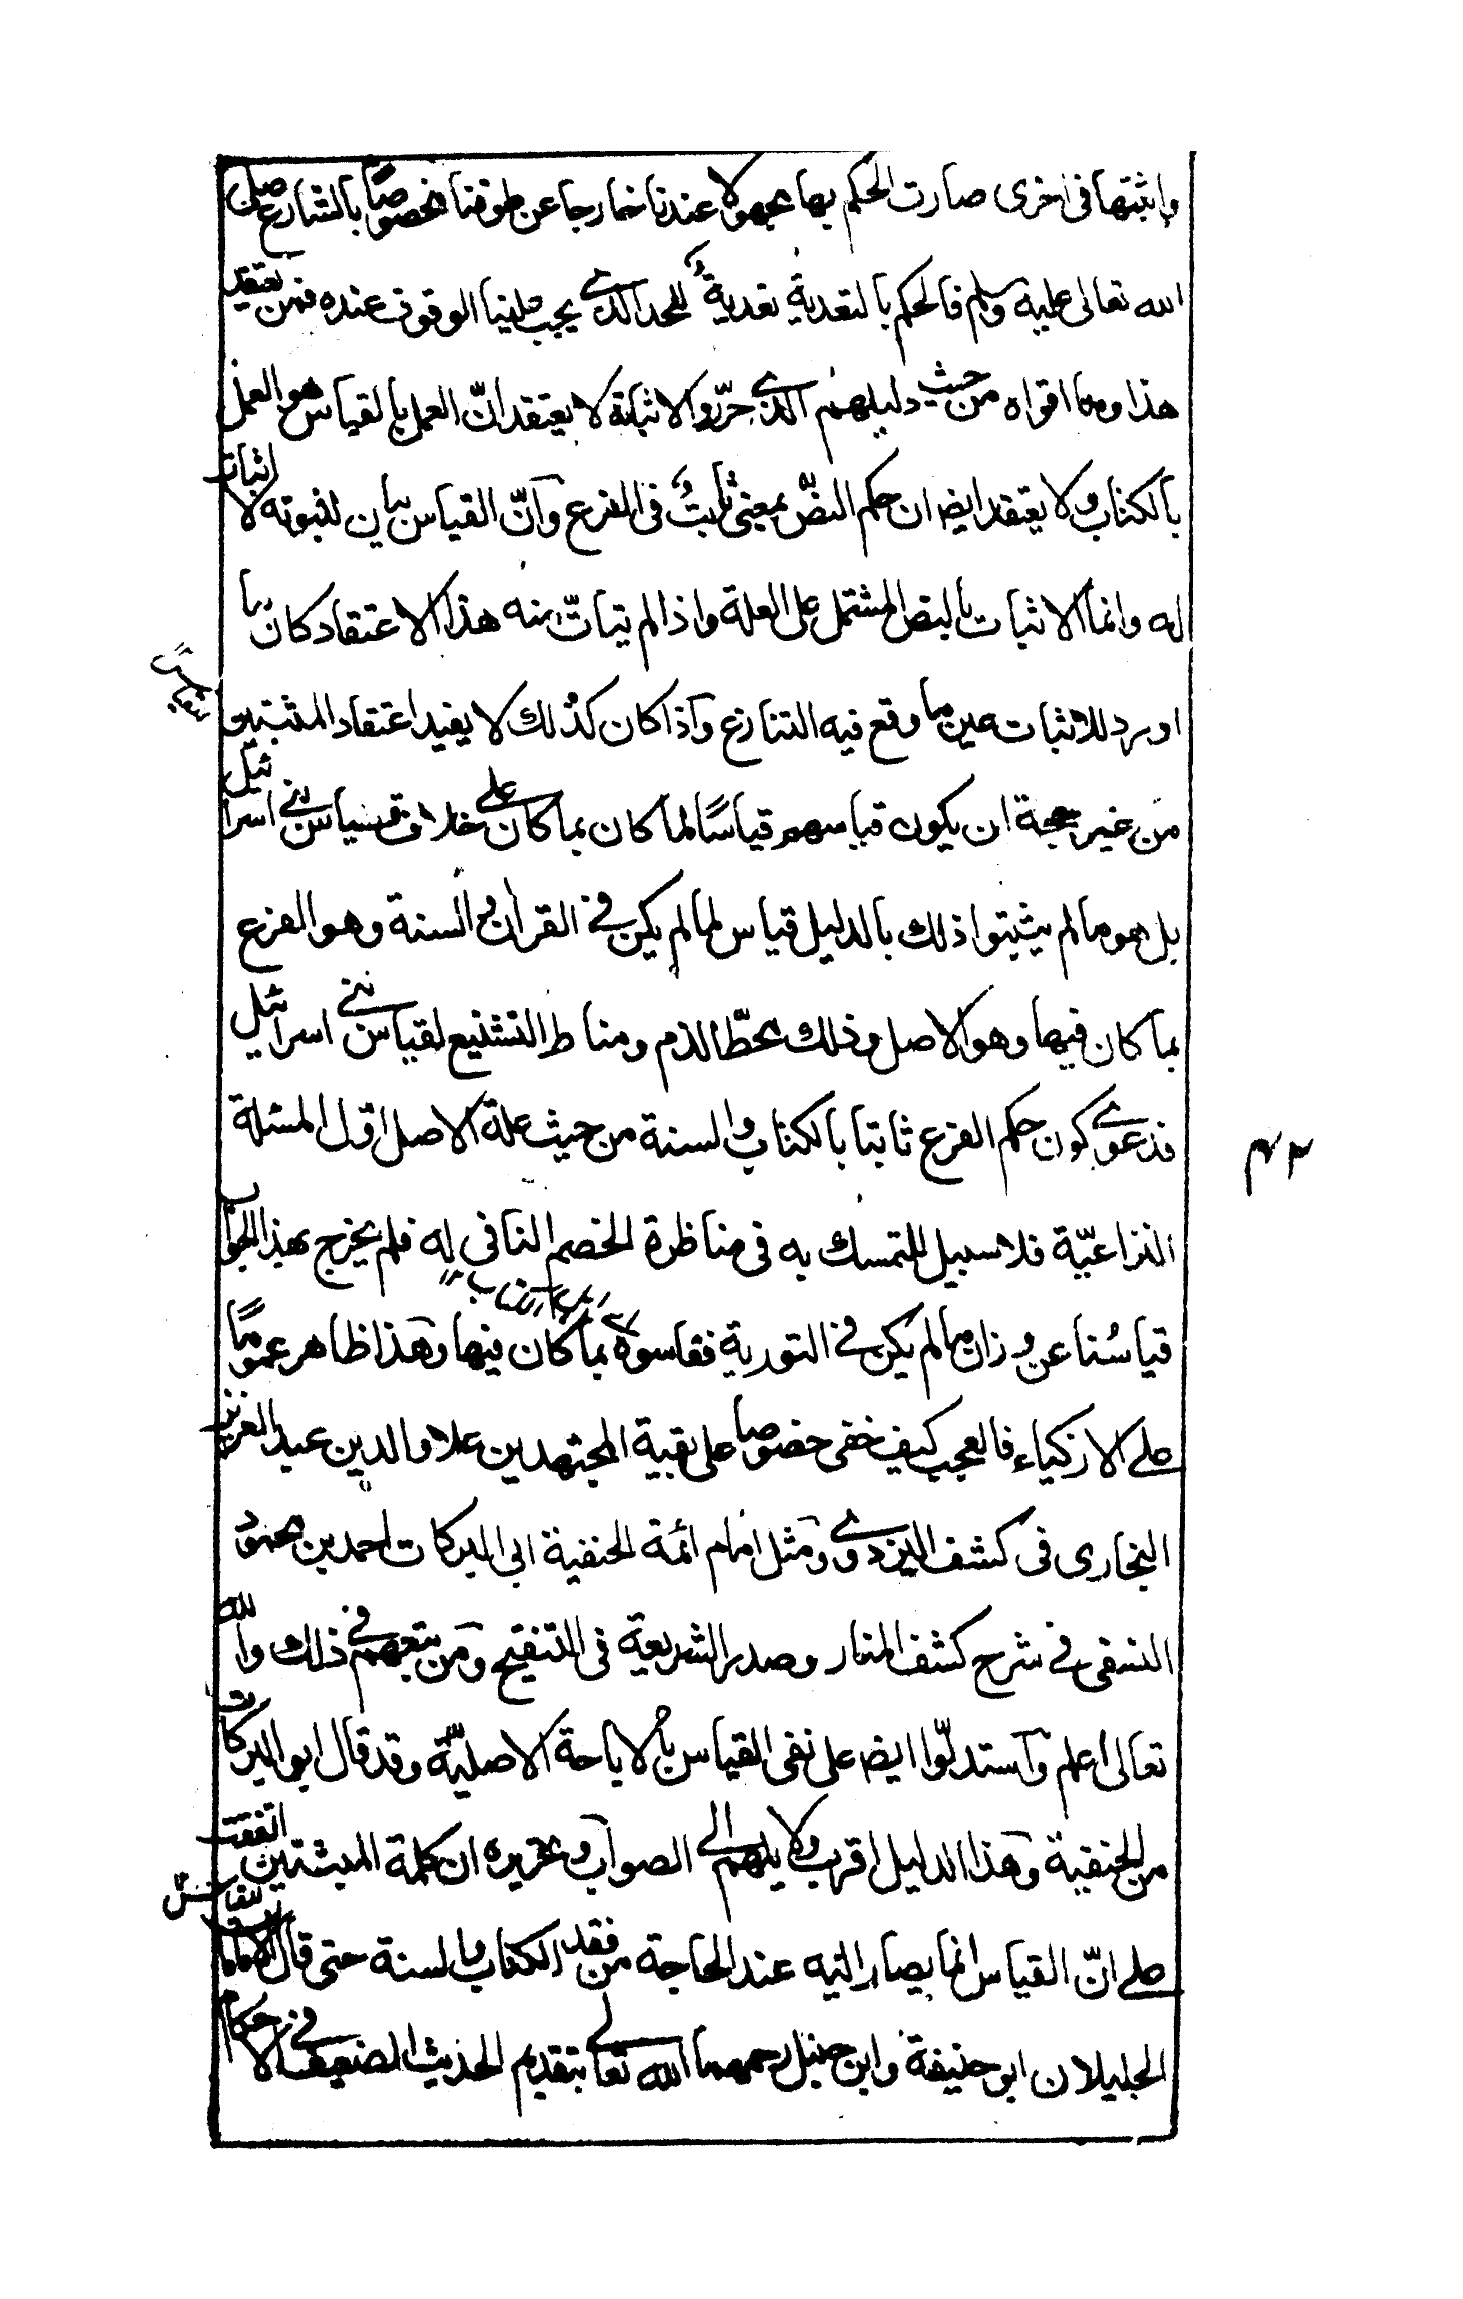 واثبتها فى اخرى صارت الحكم بها مجهولا عندنا خارجا عن طوقنا مخصوصا بالشارع صلى
الله تعالى عليه وسلم فالحكم بالتعدية تعدية للحد الذى يجب علينا الوقوف عنده فمن يعتقد
هذا وما اقواه من حيث دليلهم الذى حرّروا لاثباته لا يعتقد انّ العمل بالقياس هو العمل
بالكتاب ولا يعتقد ايضا ان حكم النصّ بمعنى ثابتٌ فى الفرع وآنّ القياس بيان لثبوته لا اثبات
له وانما الاثبات بالنص المشتمل على العلة واذا لم يتأت منه هذا الاعتقاد كان ما
اوبرد للاثبات عين ما وقع فيه التنازع وآذا كان كذلك لا يفيد اعتقاد المثبتين
من غير حجة ان يكون قياسهم قياسًا لما كان بما كان على خلاف قياس بنى اسرائيل
بل هو ما لم يثبتوا ذلك بالدليل قياس لما لم يكن فى القران والسنة وهو الفرع
بما كان فيها وهو الاصل وذلك محطّ الذم ومناط التشنيع لقياس بنى اسرائيل
فدعوى كون حكم الفرع ثابتا بالكتاب والسنة من حيث علة الاصل اوّل المسئلة
النزاعيّة فلا سبيل للتمسك به فى مناظرة الخصم النافى له فلم يخرج بهذا الجواب
قياسُنا عن وزان ما لم يكن فى التورية فقاسوه بما كان فيها وهذا ظاهر عمومًا
على الازكياء فالعجب كيف خفى خصوصا على بقية المجتهدين علاو الدين عبد العزيز
البخارى فى كشف البزدوى ومثل امام ائمة الحنفية ابى البركات احمد بن محمود
النسفى فى شرح كشف المنار وصدر الشريعة فى التنقيح ومن يتبعهم فى ذلك والله
تعالى اعلم وآستدلّوا ايضا على نفى القياس بالاباحة الاصليّة وقد قال ابو البركات
من الحنفية وهذا الدليل اقرب ولا يلهم الى الصواب وتحريره ان كلمة المثبتين اتفقت
على انّ القياس انما يصار اليه عند الحاجة من فقد الكتاب والسنة حتى قال الامامان
الجليلان ابو حنيفة وابن حنبل رحمهما الله تعالى بتقديم الحديث الضعيف فى الاحكام
٤٢